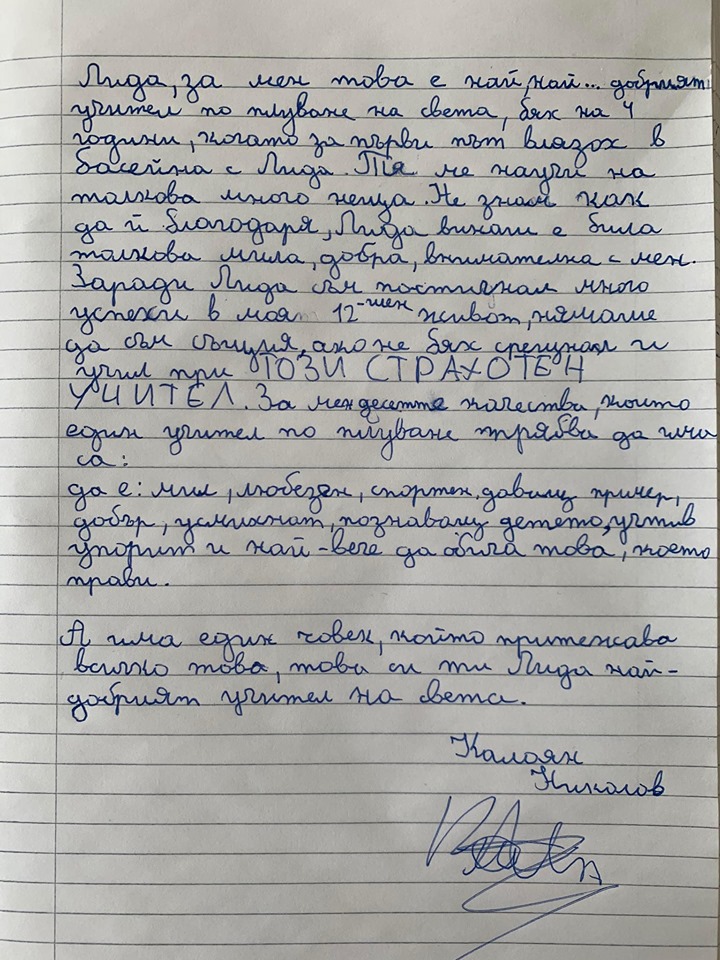 Лида, за мен това е най, най... добрият
учител по плуване на света, бях на 4
години, когато за първи път влязох в
басейна с Лида. Тя ме научи на
толкова много неща. Не знам как
да й благодаря, Лида винаги е била
толкова мила, добра, внимателна с мен.
Заради Лида съм постигнал много
успехи в моя 12-шен живот, нямаше
да съм същия, ако не бях срещнал и
учил при ТОЗИ СТРАХОТЕН
УЧИТЕЛ. За мен десетте качества, които
един учител по плуване трябва да има
са:
да е: мил, любезен, спортен, даващ пример,
добър, усмихнат, познаващ детето, учтив
упорит и най-вече да обича това, което
прави.
А има един човек, който притежава
всичко това, това си ти Лида най-
добрият учител на света.
Калоян
Николов